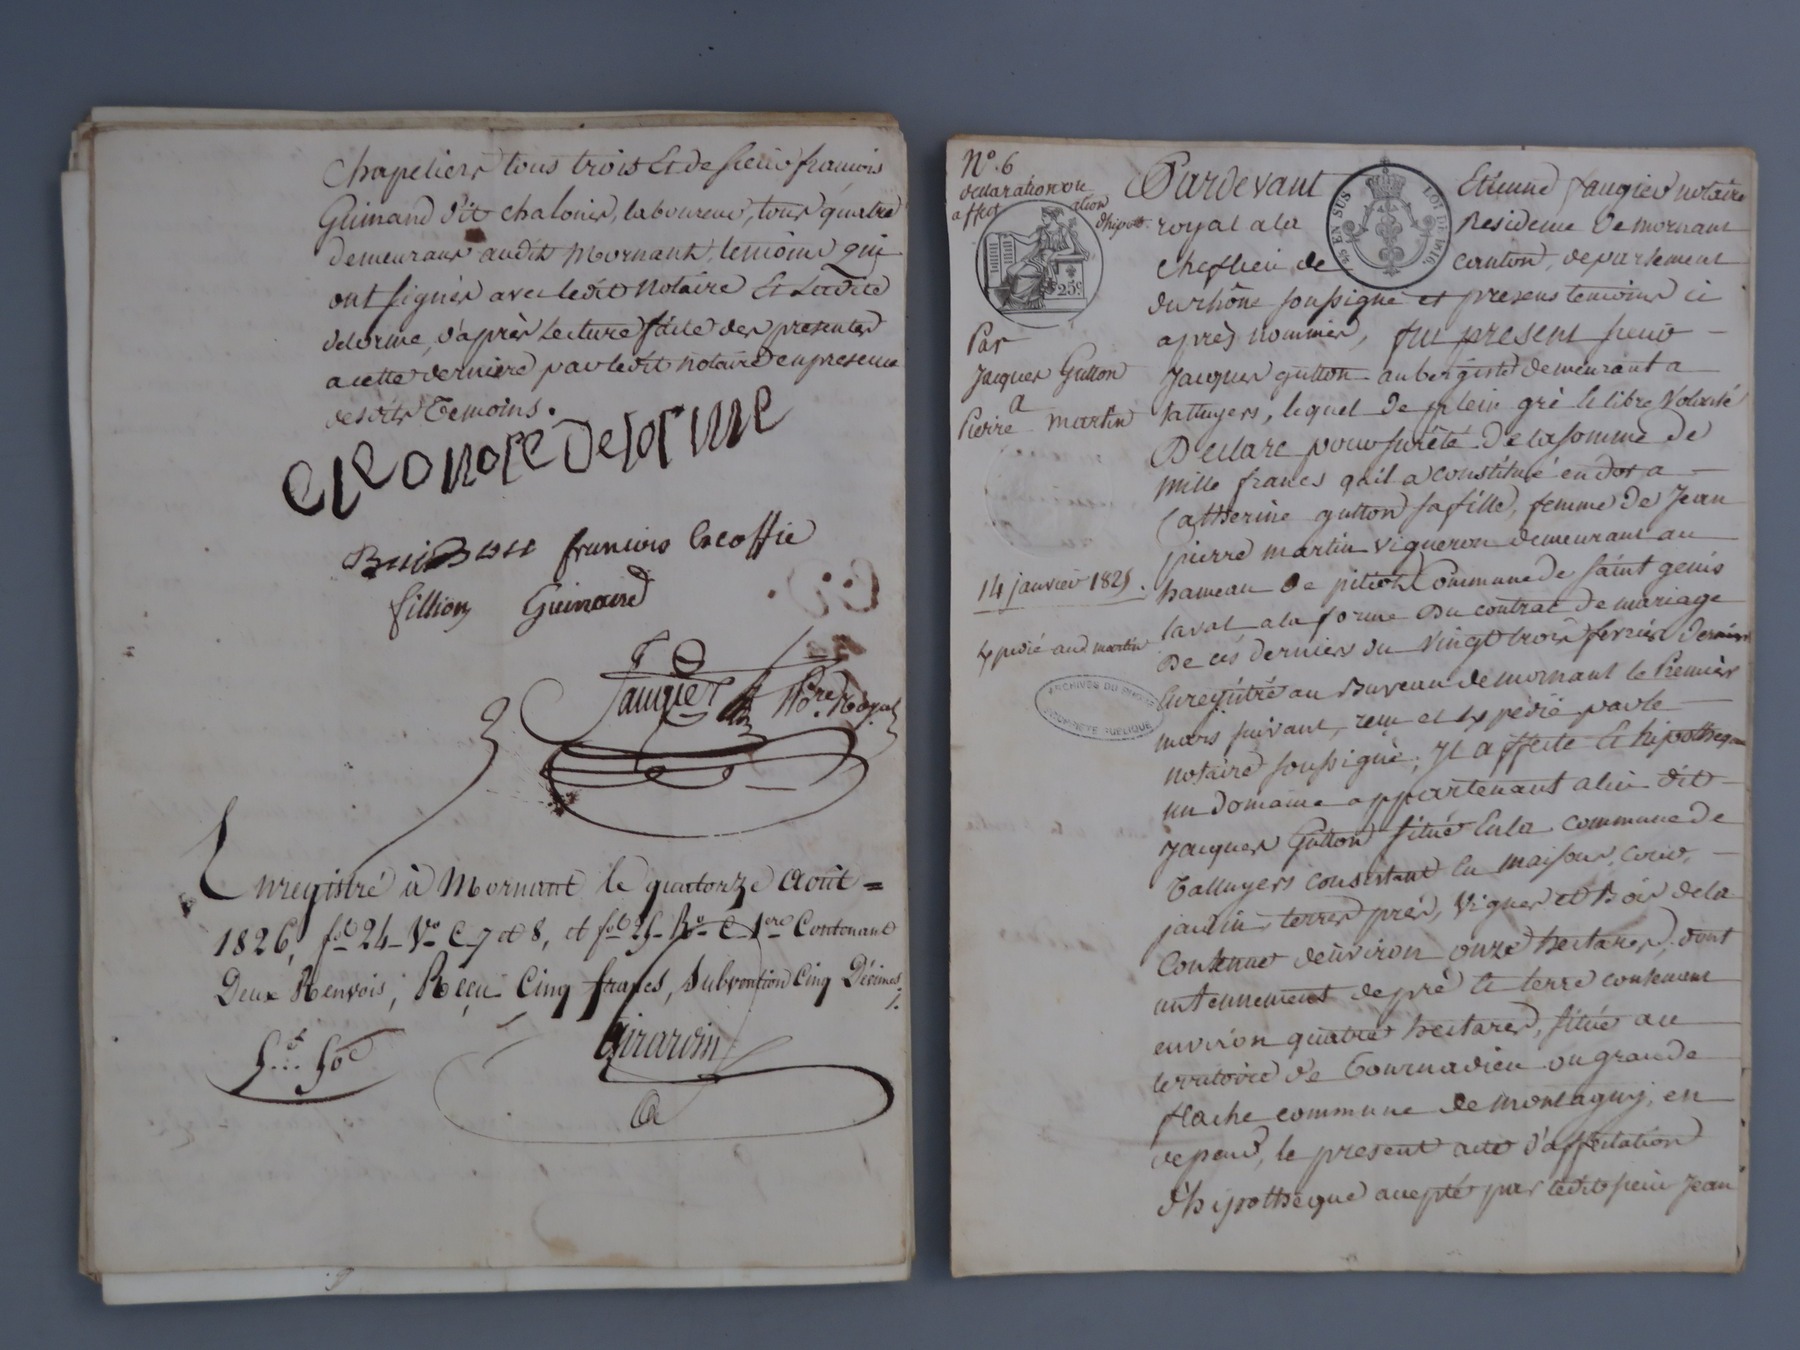 Chapeliers tous trois Et de sieur françois
Guinand dit chalonis, laboureur, tous quatre
demeurans audit Mornant, temoins qui
ont signés avec ledit Notaire Et Ladite
delorme, d'après Lecture faite des presentes
a cette derniere par ledit notaire en presence
desdits Temoins.
eleonore Delorme
Buisson françois Lacoffie
fillion Guinand
faugier Nore Royal
Enregistré à Mornant le quatorze Août =
1826, fo 24 Vo C 7 et 8, et fo 25 Ro C 1ere Contenant
Deux Renvois; Reçu Cinq francs, Subvention Cinq Décimes /.
5.f 50c
Girardin
No. 6
declaration ou
affectation
d'hipoth.
25c
Par
Jacques Gutton
a
Pierre Martin
14 janvier 1825.
Expedié aud martin
ARCHIVES DU RHONE
PROPRIÉTÉ PUBLIQUE
25 EN SUS
LOI DE 1816
Pardevant Etienne faugier notaire
royal a la Residence de Mornant
cheflieu de canton, departement
du rhône soussigné et presens temoins ci
après nommés, fut present sieur
Jacques gutton aubergiste demeurant a
tattuyers, lequel de plein gré et libre Volonté
Declare pour sureté de la somme de
Mille francs qu'il a constitué en dot a
Catherine gutton sa fille, femme de Jean
pierre martin vigneron demeurant au
hameau de Commune de saint genis
laval a la forme du contrat de mariage
de ces derniers du Vingt trois fevrier dernier
Enregistré au Bureau de mornant le Premier
mars suivant, reçu et Expedié par le
notaire soussigné, il affecte et hipotheque
un domaine appartenant a lui dit
Jacques Gutton situé En la commune de
Talluyers consistant En Maison, Cour,
jardin, terres prés, vignes et Bois de la
Contenue d'environ onze hectares, dont
un tennement de pré et terre contenant
environ quatre hectares, situé au
territoire de Tournadieu ou grande
flache commune de montagny, en
depend, le present acte d'affectation
d'hipotheque accepté par ledit sieur Jean